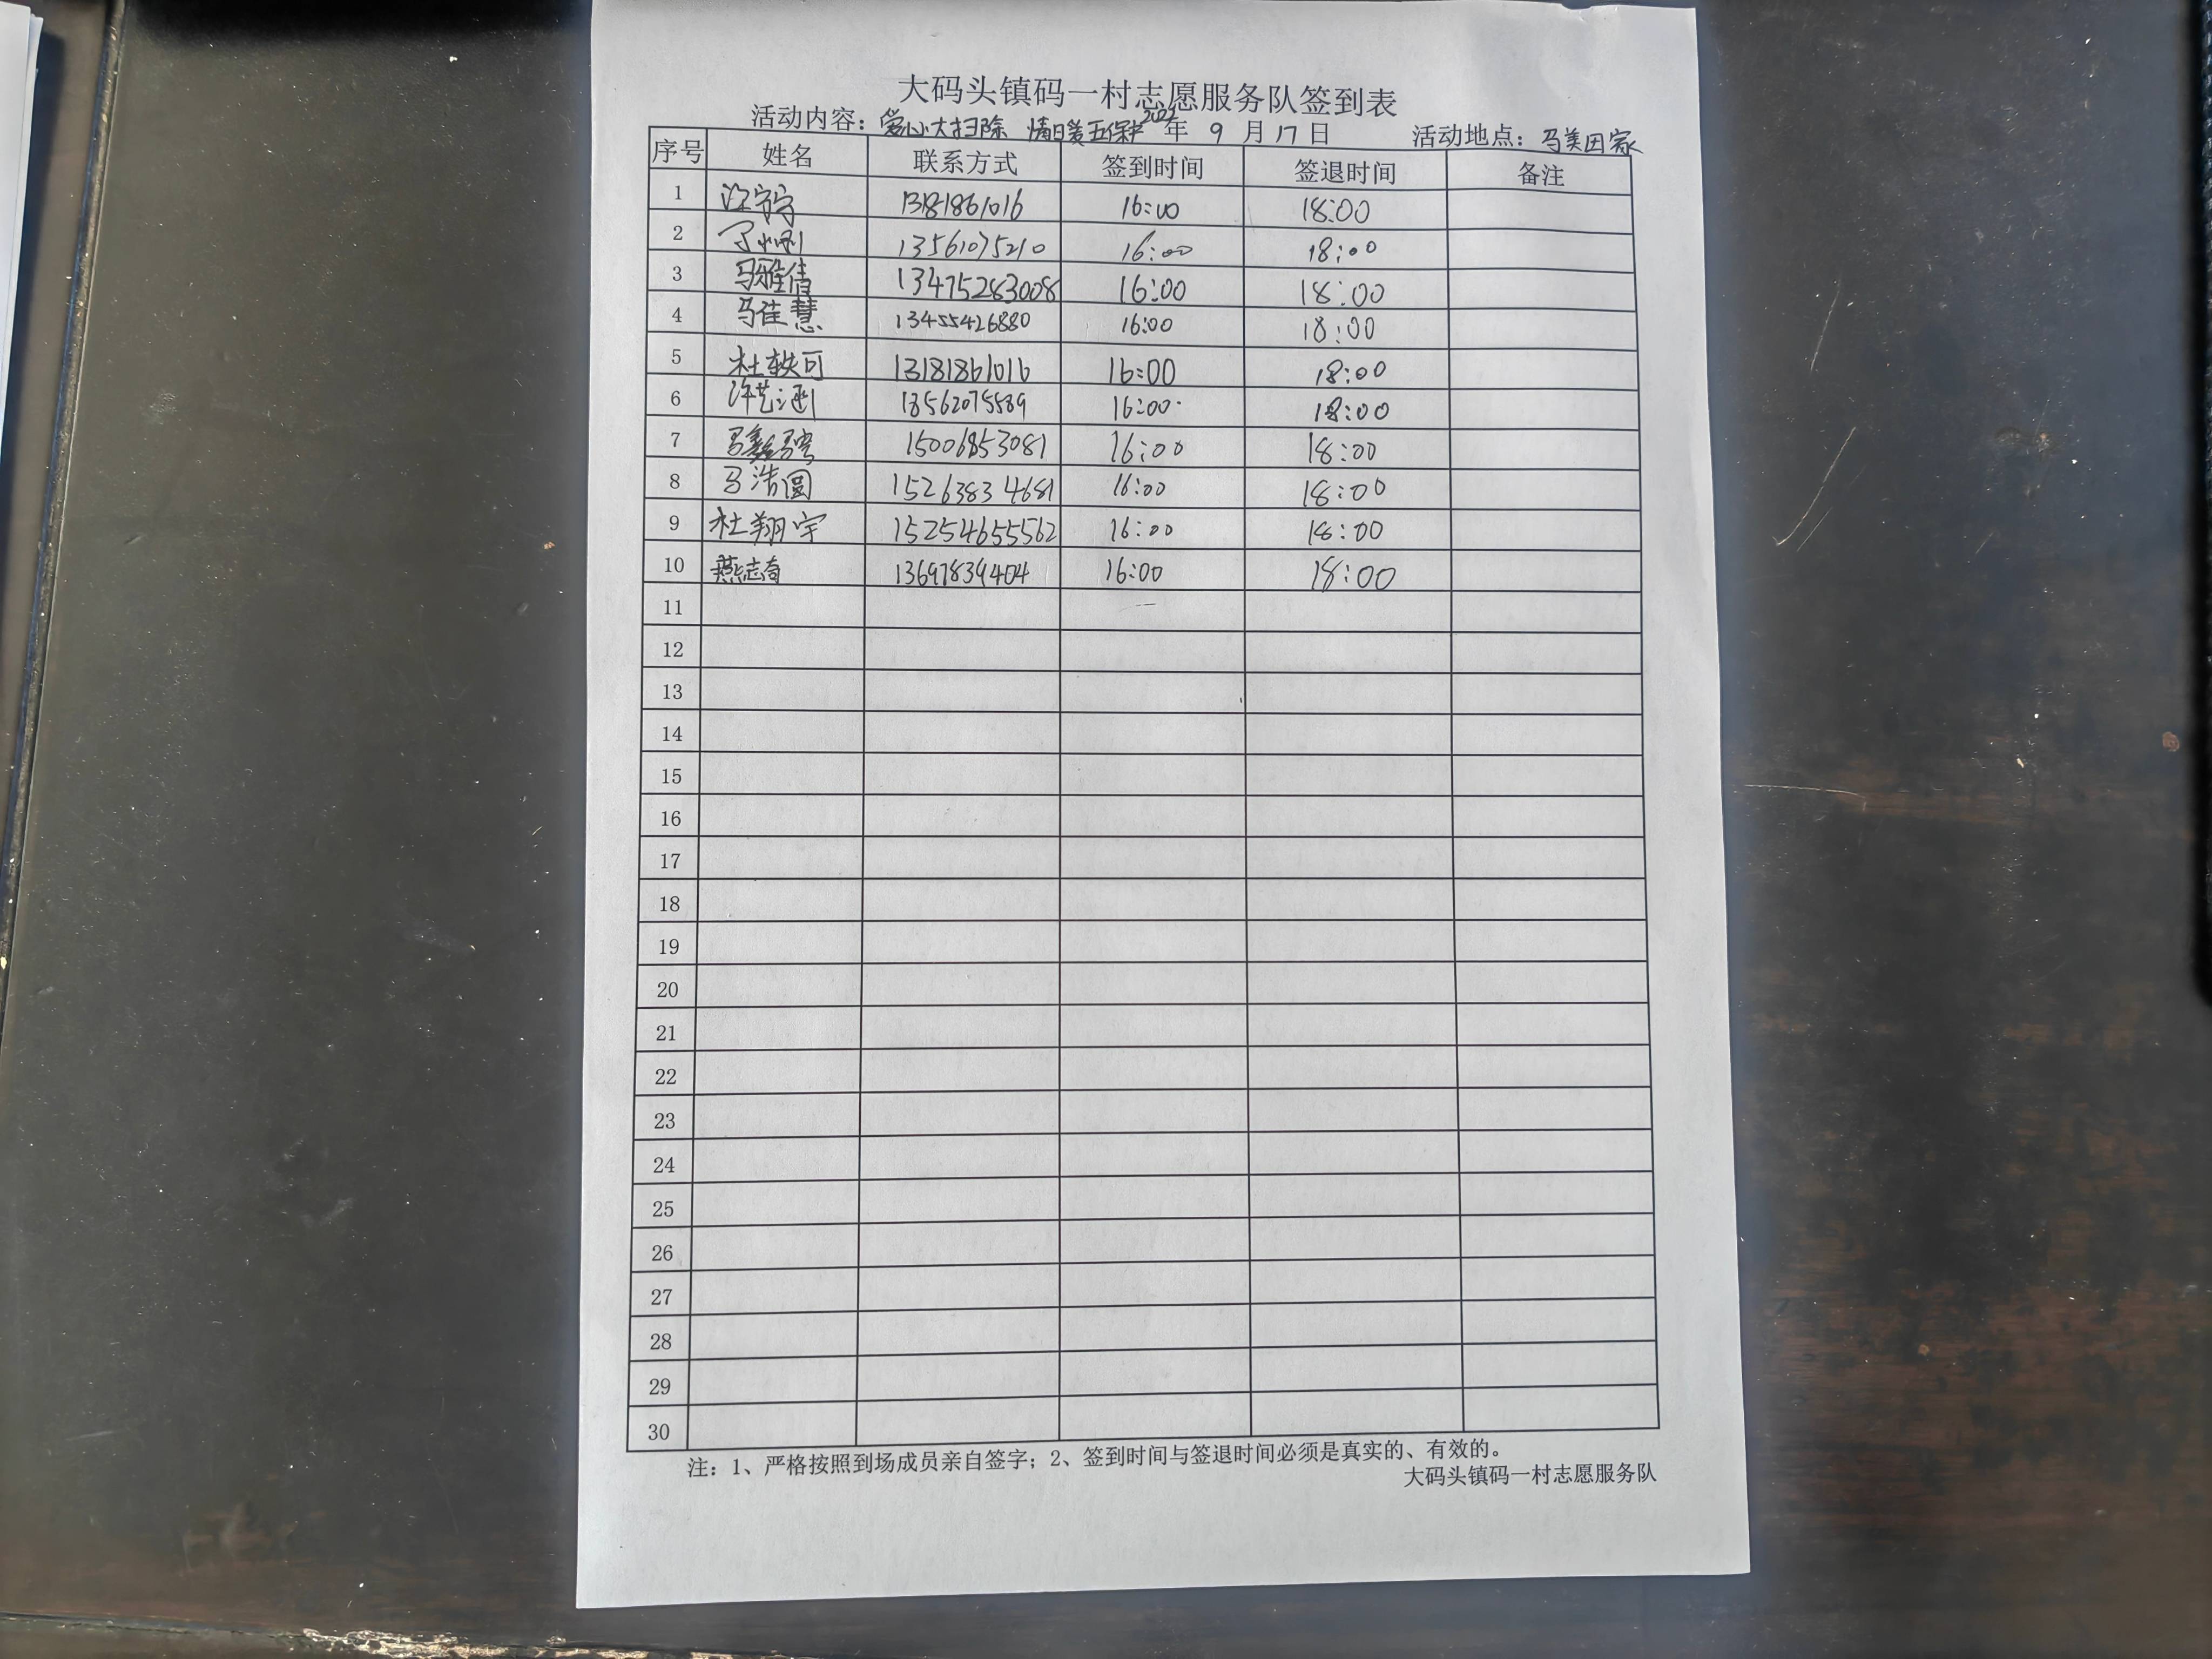 大码头镇码一村志愿服务队签到表
活动内容：爱心大扫除 情日暖五保户 2022年 9 月 17 日 活动地点：马美因家
序号 姓名 联系方式 签到时间 签退时间 备注
1 13181861016 16:00 18:00
2 13561075210 16:00 18:00
3 马雅倩 13475283008 16:00 18:00
4 马佳慧 13455426880 16:00 18:00
5 杜轶可 13181861016 16:00 18:00
6 许艺涵 13562075589 16:00 18:00
7 马鑫 15006853081 16:00 18:00
8 马浩圆 15263834681 16:00 18:00
9 杜翔宇 152554655562 16:00 18:00
10 燕志奇 13697839404 16:00 18:00
11
12
13
14
15
16
17
18
19
20
21
22
23
24
25
26
27
28
29
30
注：1、严格按照到场成员亲自签字；2、签到时间与签退时间必须是真实的、有效的。
大码头镇码一村志愿服务队